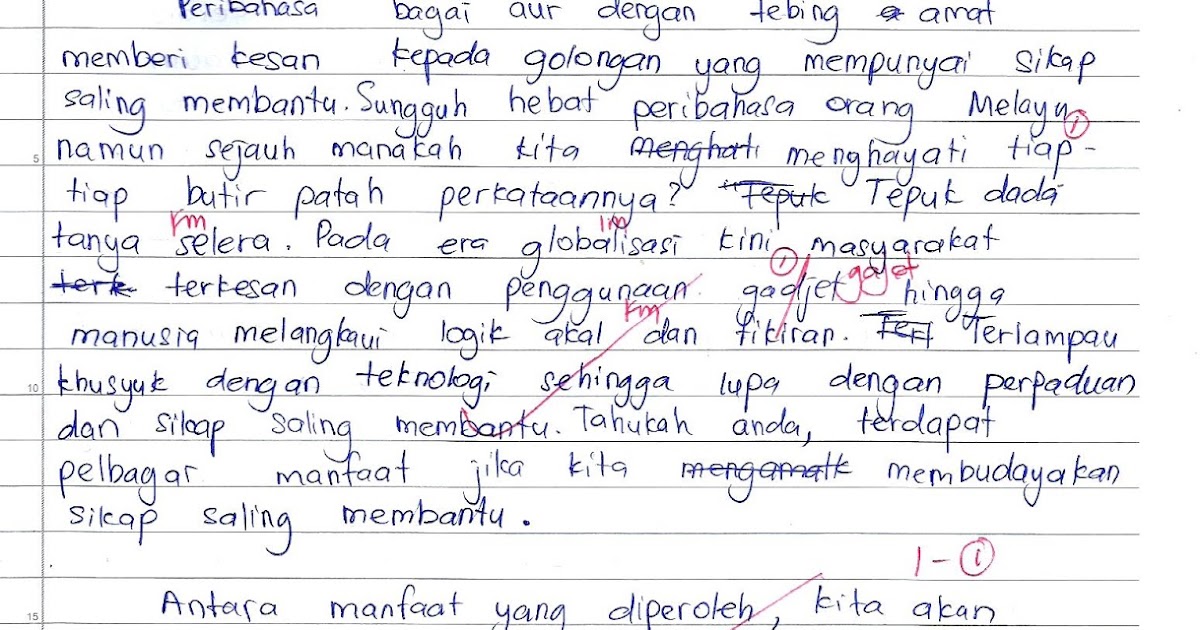 Peribahasa bagai aur dengan tebing amat
memberi kesan kepada golongan yang mempunyai sikap
saling membantu. Sungguh hebat peribahasa orang Melayu
1
5 namun sejauh manakah kita menghati menghayati tiap-
tiap butir patah perkataannya? "Tepuk Tepuk dada
km im
tanya selera. Pada era globalisasi kini masyarakat
1 gajet
terk terkesan dengan penggunaan gadjet hingga
km
manusia melangkaui logik akal dan fikiran. Terl Terlampau
10 khusyuk dengan teknologi sehingga lupa dengan perpaduan
dan sikap saling membantu. Tahukah anda, terdapat
pelbagai manfaat jika kita mengamalk membudayakan
sikap saling membantu.
1 - 1
15 Antara manfaat yang diperoleh, kita akan